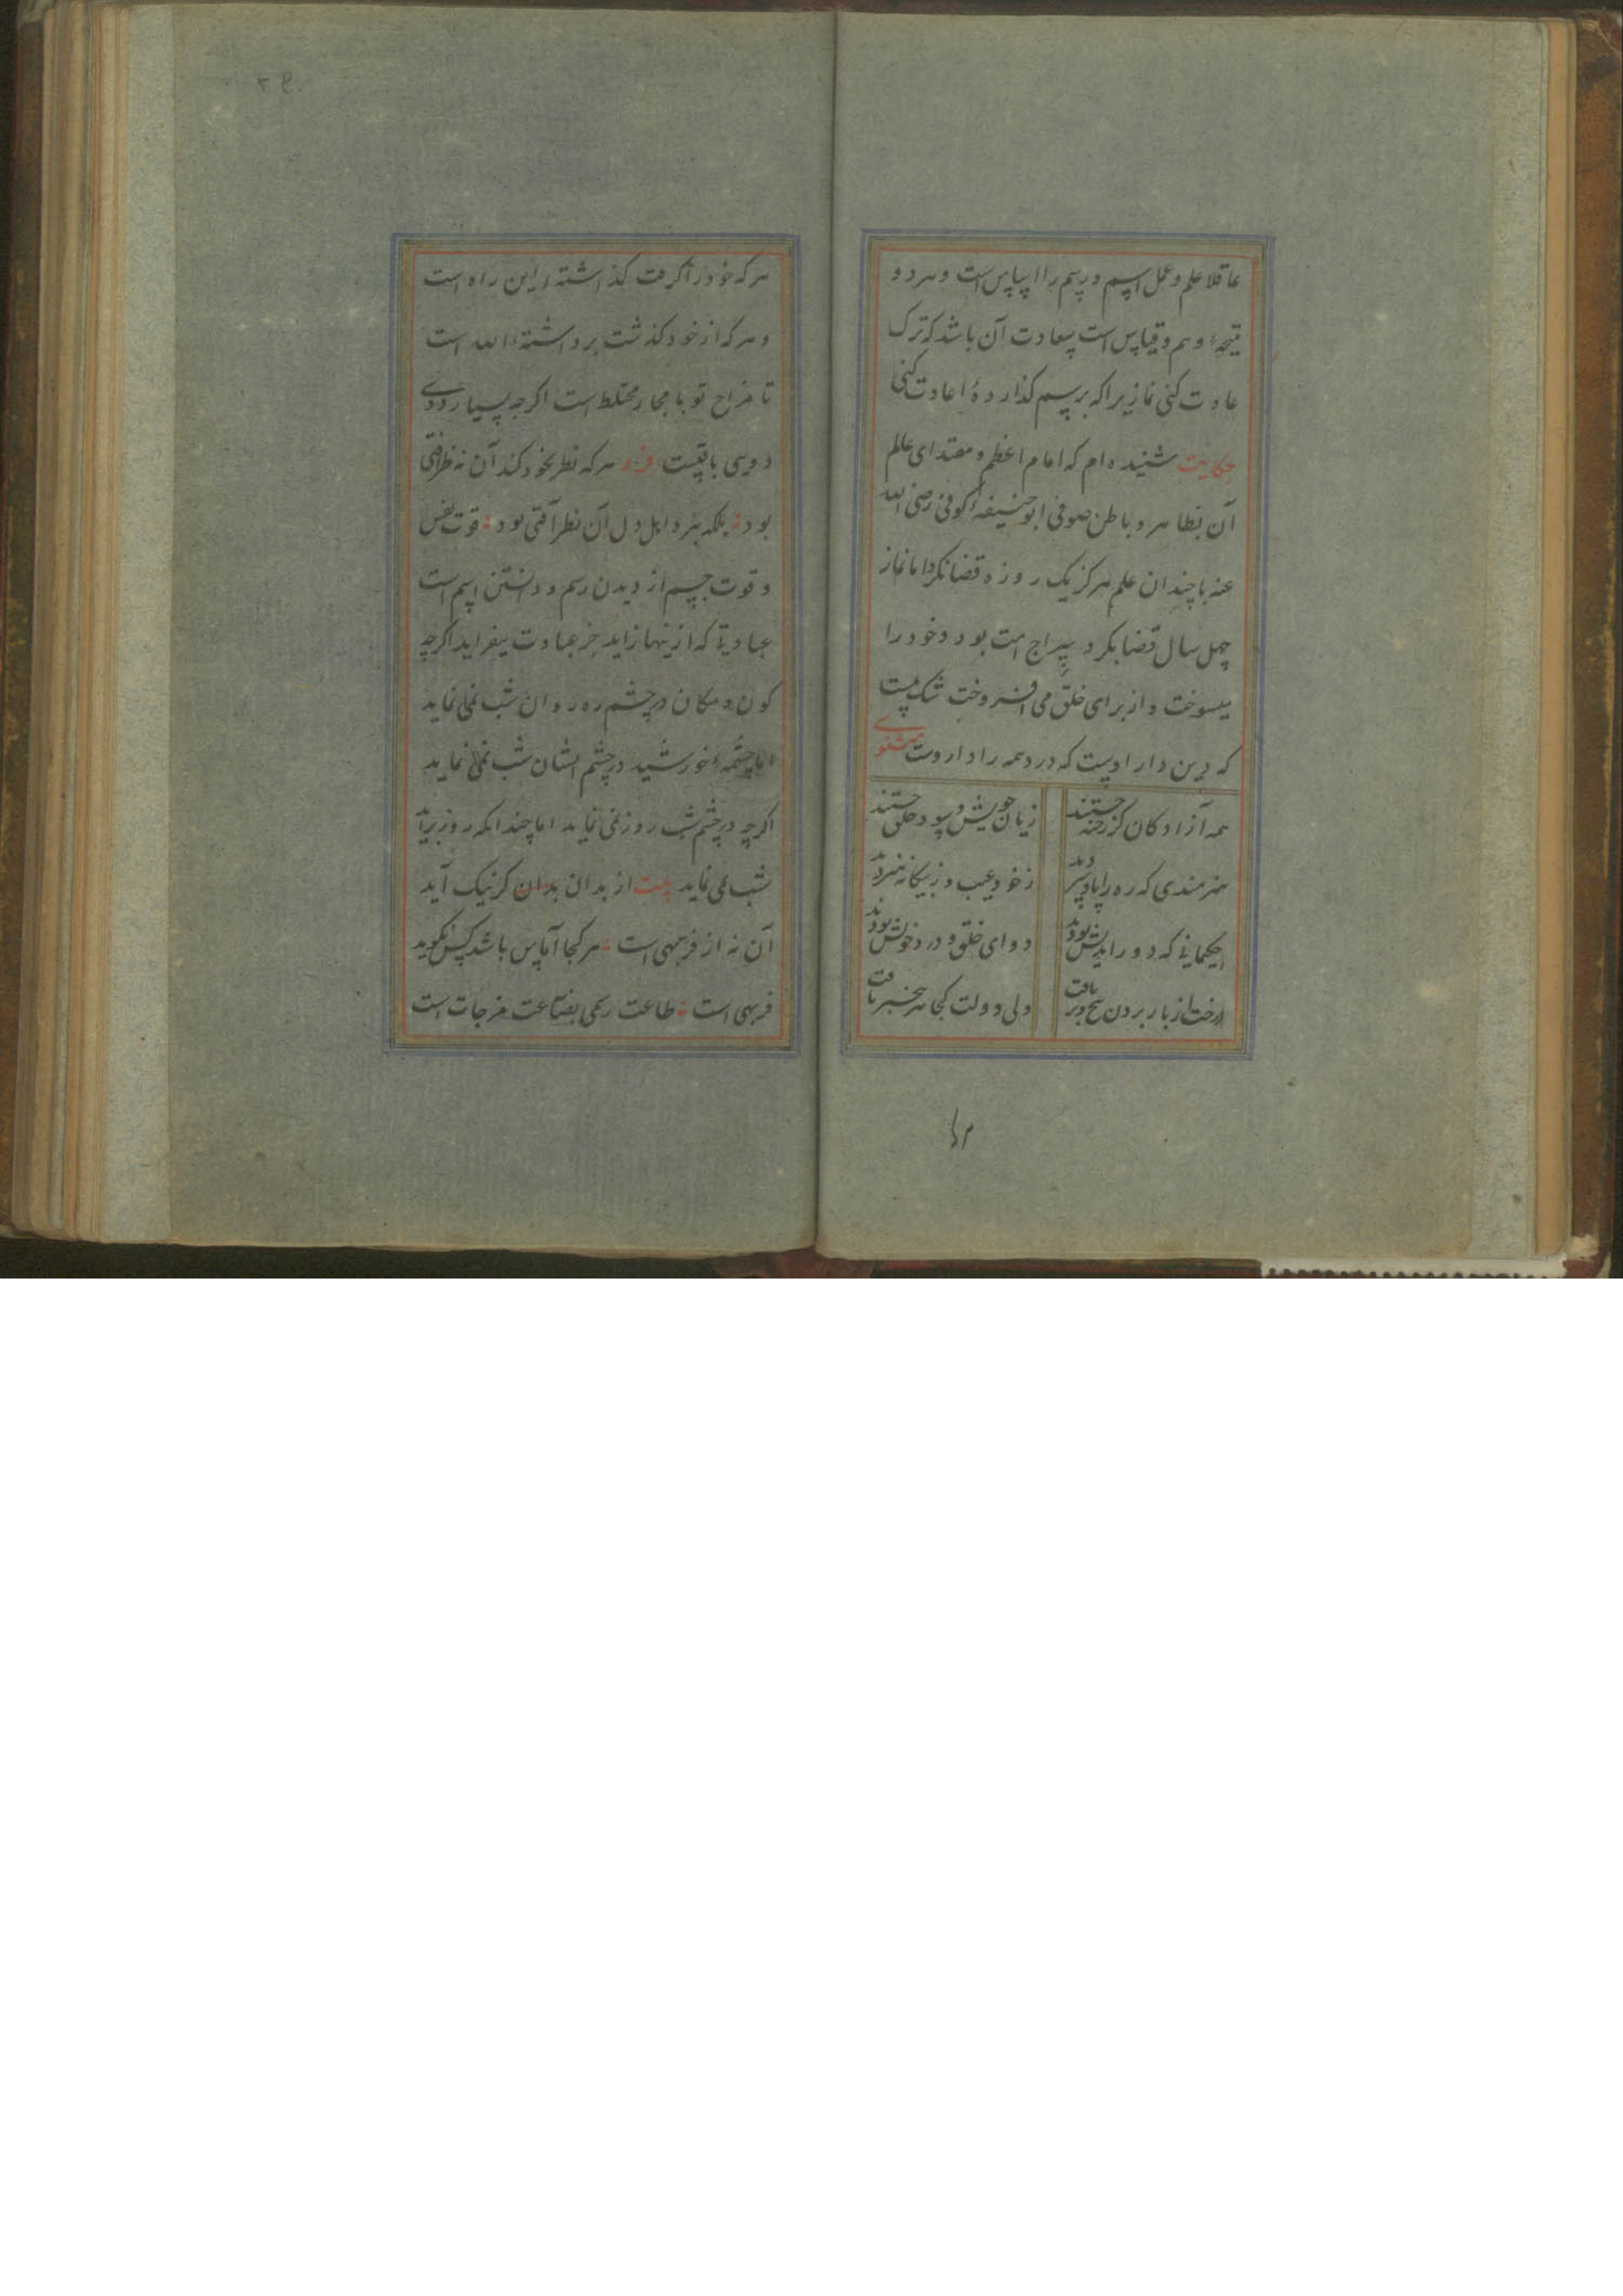 عاقلا علم و عمل اسم و رسم را اساس است و هر دو
نتیجهٔ وهم و قیاس است سعادت آن باشد که ترک
عادت کنی نماز یرا که برسم گذاردهٔ اعادت کنی
حکایت شنیده ام که امام اعظم و مقتدای عالم
آن بظاهر و باطن صوفی ابو حنیفه کوفی رضی الله
عنه با چندان علم هرگز یک روزه قضا نکرد اما نماز
چهل سال قضا بکرد سراج امت بود و خود را
میسوخت و از برای خلق می افروخت شک نیست
که درین دار اوست که درد همه را داروست مثنوی
همه آزادگان کز رخنه جستند زیان خویش و سود خلق جستند
هنرمندی که ره را پا و سر دید ز خود عیب و ز بیگانه هنر دید
حکیمانی که دور اندیش بودند دوای خلق و درد خویش بودند
درخت از بار بردن بیخ و بر یافت ولی دولت کجا هر بیخبر یافت
هر
هر که خود را گرفت گذاشتهٔ این راه است
و هر که از خود گذشت برداشتهٔ الله است
تا مزاج تو با مجاز مختلط است اگر چه بسیار روی
دویی باقیست فرد هر که نظر بخود کند آن نه ظرافتی
بود بلکه بنزد اهل دل آن نظر آفتی بود قوت نفس
و قوت جسم از دیدن رسم و دانستن اسم است
عبادتی که ازینها زاید جز عبادت نیفزاید اگر چه
کون و مکان در چشم ره روان شب نمی نماید
اما چشمهٔ خورشید در چشم ایشان شب نمی نماید
اگر چه در چشم شب روز نمی نماید اما چندانکه روز برآید
شب نمی نماید بیت از بدان بدان گر نیک آید
آن نه از فربهی است هر کجا آماس باشد کس نگوید
فربهی است طاعت رسمی بضاعت مزجات است